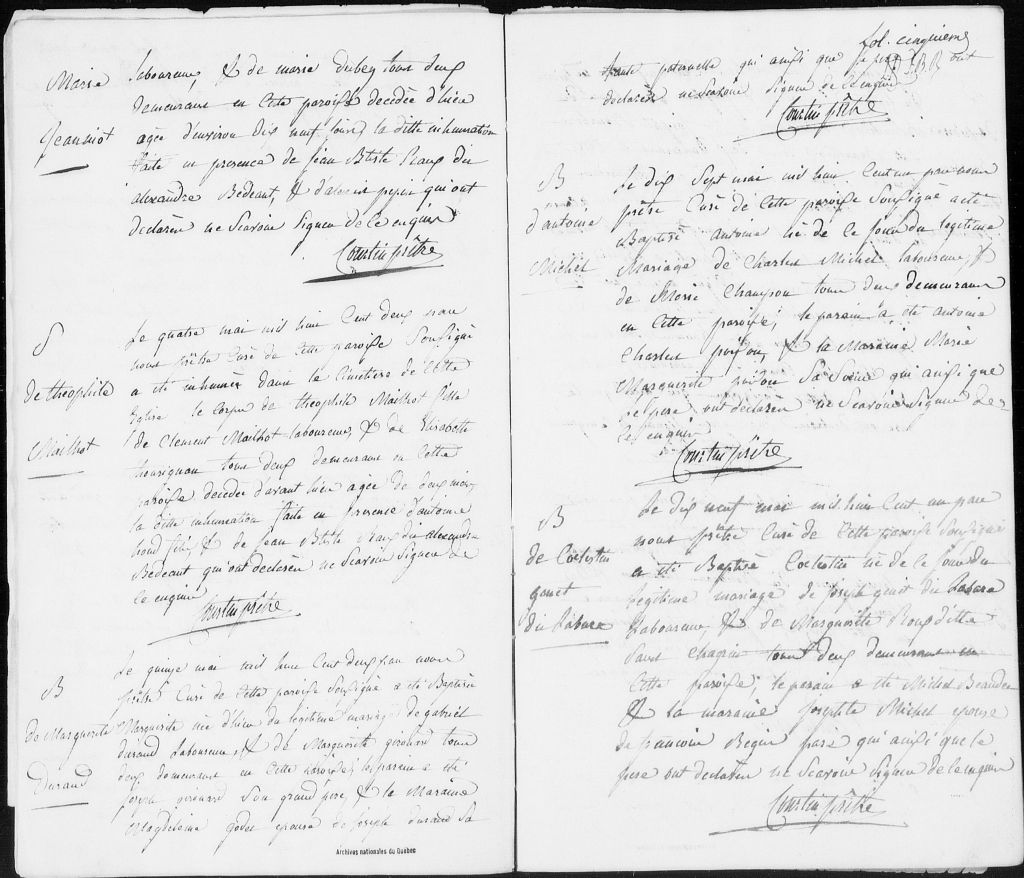 Marie
Jeanniot
laboureur, & de marie dubey tous deux
demeurans en cette paroisse decedée d'hier
agée d'environ dix neuf jours, la ditte inhumation
faite en presence de jean Btiste Raux du
alexandre Bedeaut, & d'alexis pepin qui ont
declarèn ne Scavoir Signer de ce enquis
Courtin prêtre
S
de theophile
Mailhot
Le quatre mai mil huit Cent deux par
nous prêtre Curé de Cette paroisse Soussigné
a été inhumée dans le Cimetiere de Cette
Eglise le Corps de theophile Mailhot fils
de Clement Mailhot laboureur, & de Elisabette
tousignan tous deux demeurans en Cette
paroisse decedée d'avant hier agée de deux mois,
la ditte inhumation faite en presence d'antoine
& de jean Btiste Raux du alexandre
Bedeaut qui ont declarèn ne Scavoir Signer de
ce enquis
Courtin prêtre
B
de Marguerite
Durand
Le quinze mai mil huit Cent deux par nous
prêtre Curé de Cette paroisse Soussigné a été Baptisée
Marguerite née d'hier du légitime mariage de gabriel
durand Laboureur, & de Marguerite girouard tous
deux demeurans en Cette paroisse; le parain a été
joseph girouard Son grand pere, & la Maraine
Magdeleine godet epouse de joseph durand Sa
Archives nationales du Québec
fol. cinquieme
tante paternelle qui aussi que le pere ont
declarèn ne Scavoir Signer de ce enquis
Courtin prêtre
B
d'antoine
Michel
Le dix Sept mai mil huit Cent un par nous
prêtre Curé de Cette paroisse Soussigné a été
Baptisé antoine né de ce jour du legitime
Mariage de Charles Michel laboureur, &
de Marie Champou tous deux demeurans
en Cette paroisse; le parain a été antoine
Charles poison, & la Maraine Marie
Marguerite poison Sa Soeur qui aussi que
le pere ont declarèn ne Scavoir Signer de
ce enquis
Courtin prêtre
B
de Coelestin
genet
du Labare
Le dix neuf mai mil huit Cent un par
nous prêtre Curé de Cette paroisse Soussigné
a été Baptisé Coelestin né de ce jour du
légitime mariage de joseph genit du Labara
Laboureur, & de Marguerite Roux ditte
Sans Chagrin tous deux demeurans en
Cette paroisse; le parain a été Michel Beaudet
& la maraine Josephte Michel epouse
de francois Begin pere qui aussi que le
pere ont declarèn ne Scavoir Signer de ce enquis
Courtin prêtre